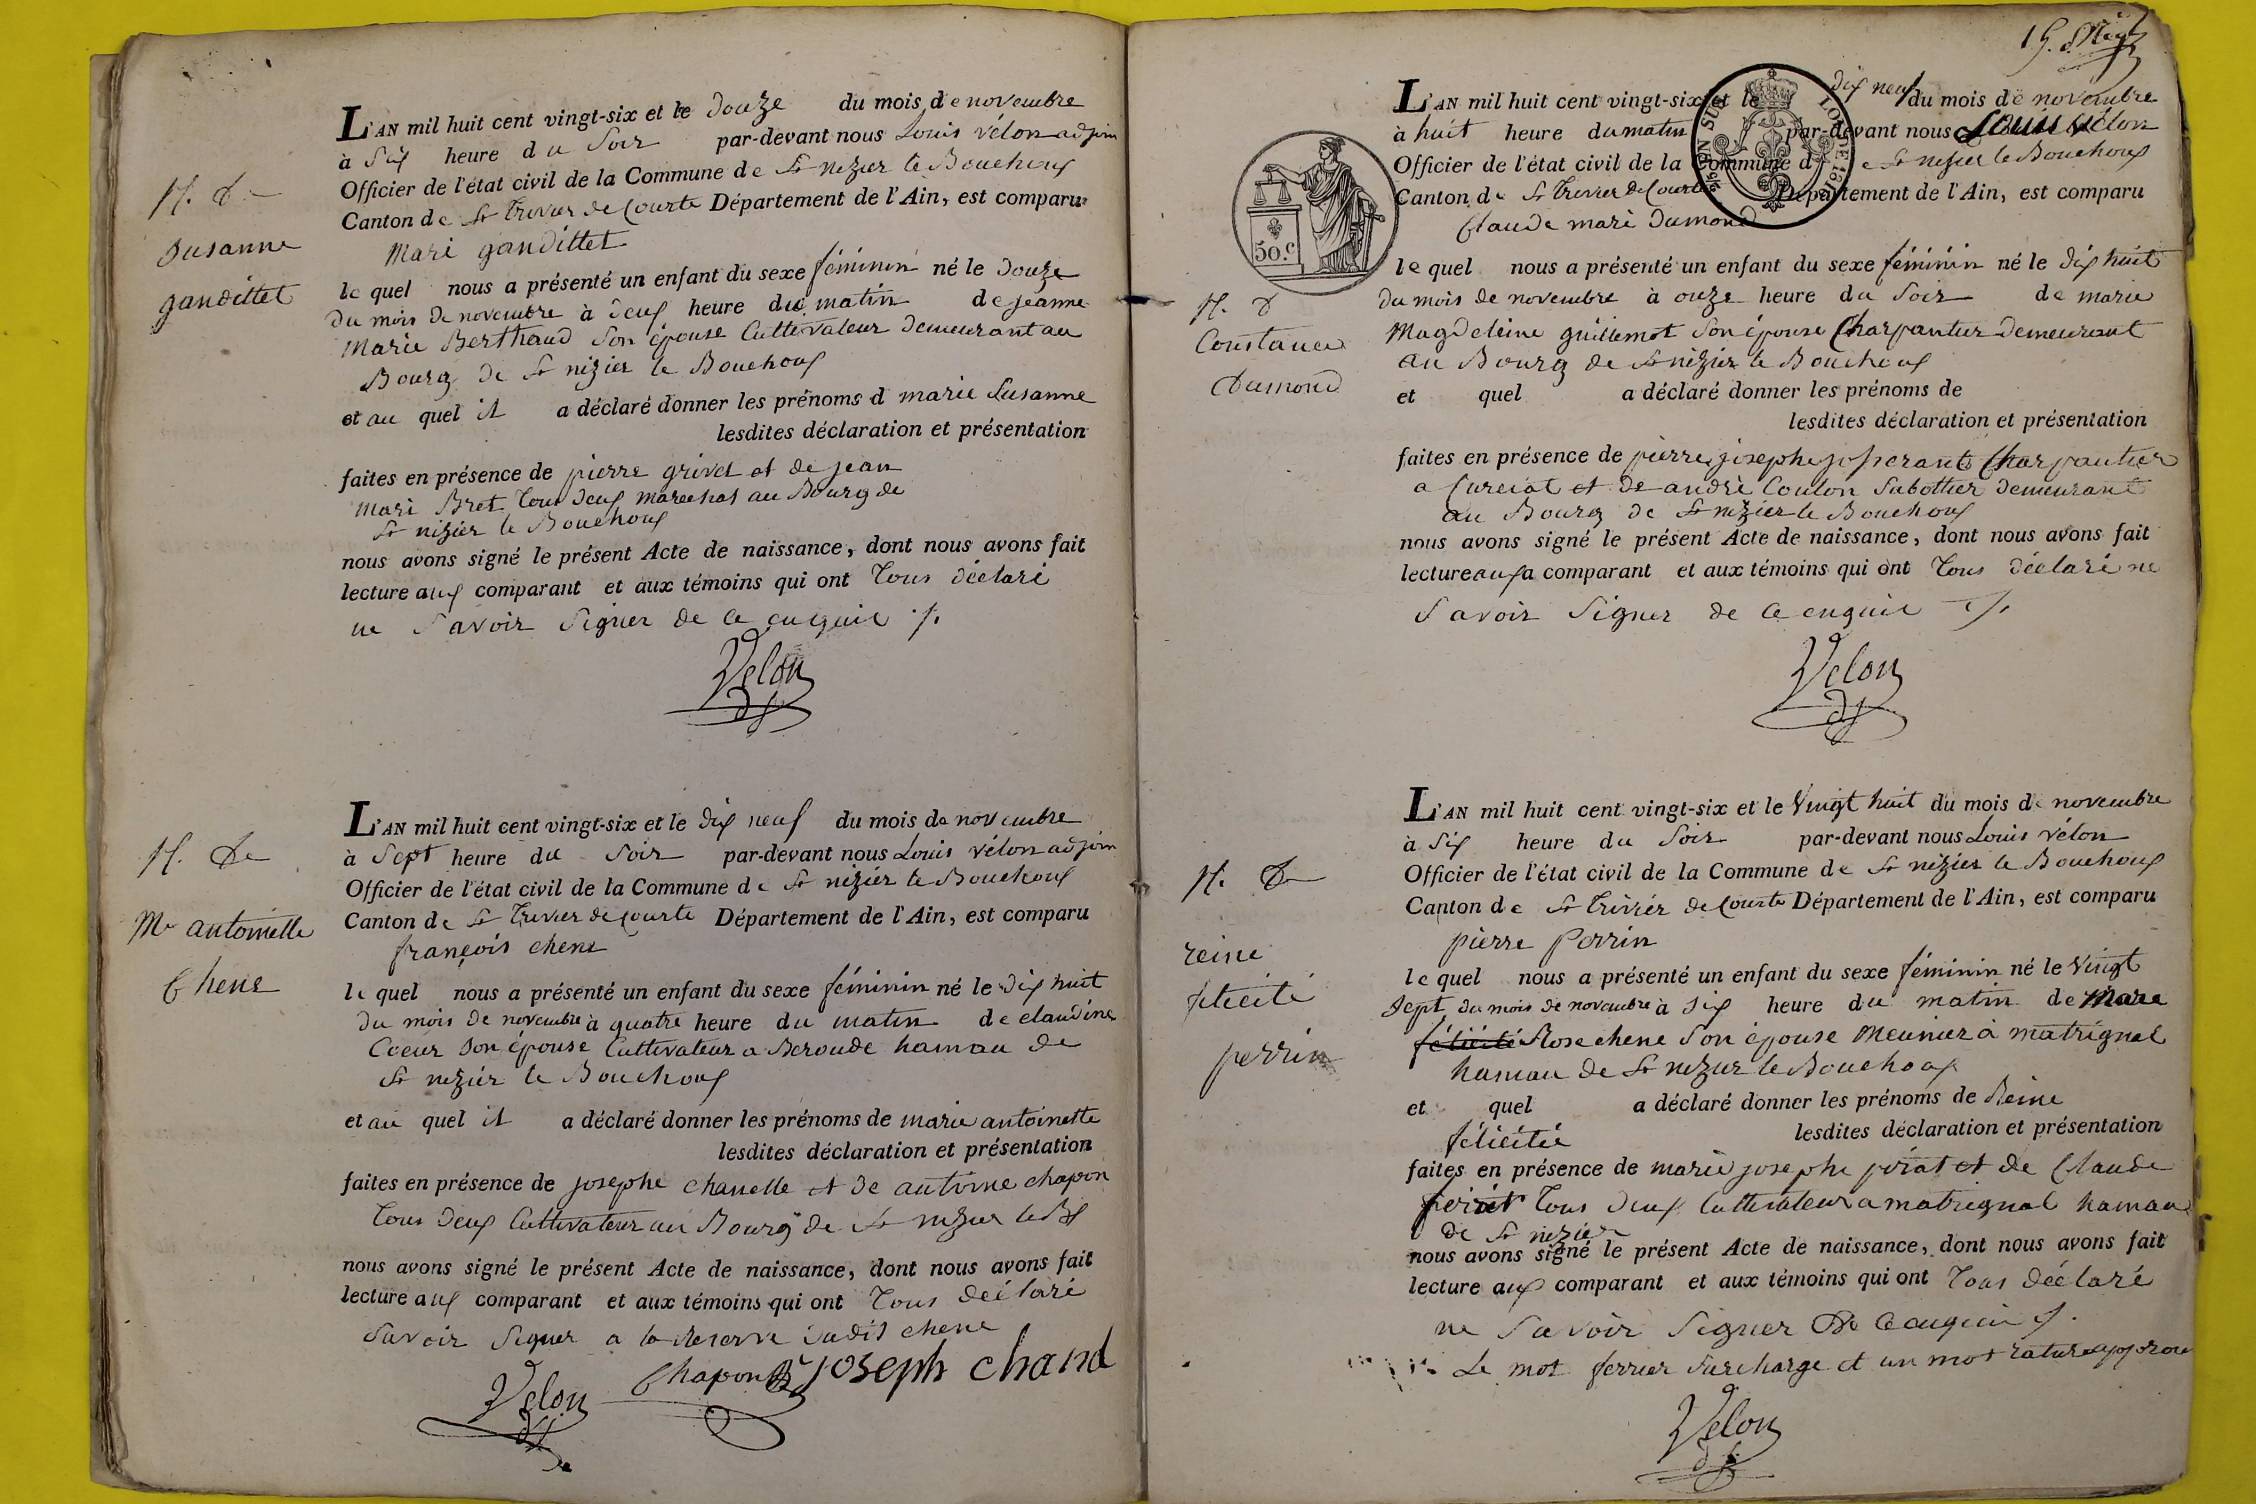 N. De
Susanne
gandillet
L'AN mil huit cent vingt-six et le douze du mois de novembre
à Six heure du Soir par-devant nous Louis vélon adjoin
Officier de l'état civil de la Commune de St nizier le Bouchoux
Canton de St trivier de Courte Département de l'Ain, est comparu
Mari gandillet
le quel nous a présenté un enfant du sexe féminin né le douze
du mois de novembre à deux heure du matin de jeanne
Marie Berthaud Son épouse Cultivateur demeurant au
Bourg de St nizier le Bouchoux
et au quel il a déclaré donner les prénoms d marie Susanne
lesdites déclaration et présentation
faites en présence de pierre grivet et de jean
Mari Bret tous deux marechal au Bourg de
St nizier le Bouchoux
nous avons signé le présent Acte de naissance, dont nous avons fait
lecture aux comparant et aux témoins qui ont tous déclaré
ne Savoir Signer de ce enquis
Velon
N. De
Me antoinette
Chene
L'AN mil huit cent vingt-six et le dix neuf du mois de novembre
à Sept heure du Soir par-devant nous Louis vélon adjoin
Officier de l'état civil de la Commune de St nizier le Bouchoux
Canton de St trivier de Courte Département de l'Ain, est comparu
françois chene
le quel nous a présenté un enfant du sexe féminin né le dix huit
du mois de novembre à quatre heure du matin de claudine
Coeur Son épouse Cultivateur a Beroude hamau de
St nizier le Bouchoux
et au quel il a déclaré donner les prénoms de marie antoinette
lesdites déclaration et présentation
faites en présence de josephe chanelle et de antoine chapon
tous deux Cultivateur au Bourg de St nizier le Bx
nous avons signé le présent Acte de naissance, dont nous avons fait
lecture aux comparant et aux témoins qui ont tous déclaré
Savoir Signer a la Reserve dudit chene
Velon Chapon joseph chand
15.
N. D
Constance
Dumond
50.C
L'AN mil huit cent vingt-six et le dix neuf du mois de novembre
à huit heure du matin par-devant nous Louis vélon
Officier de l'état civil de la Commune de St nizier le Bouchoux
Canton de St trivier de Courte Département de l'Ain, est comparu
Claude mari dumond
le quel nous a présenté un enfant du sexe féminin né le dix huit
du mois de novembre à onze heure du Soir de marie
Magdeleine guillemot Son épouse Charpantier demeurant
au Bourg de St nizier le Bouchoux
et quel a déclaré donner les prénoms de
lesdites déclaration et présentation
faites en présence de pierre josephe josserant Charpantier
a Curciat et de andré Coulon Sabottier demeurant
au Bourg de St nizier le Bouchoux
nous avons signé le présent Acte de naissance, dont nous avons fait
lecture aux a comparant et aux témoins qui ont tous déclaré ne
Savoir Signer de ce enquis
Velon
N. De
reine
félicité
perrin
L'AN mil huit cent vingt-six et le Vingt huit du mois de novembre
à Six heure du Soir par-devant nous Louis vélon
Officier de l'état civil de la Commune de St nizier le Bouchoux
Canton de St trivier de Courte Département de l'Ain, est comparu
pierre perrin
le quel nous a présenté un enfant du sexe féminin né le Vingt
Sept du mois de novembre à Six heure du matin de Marie
félicité Rose chene Son épouse Meunier à matrignal
hamau de St nizier le Bouchoux
et quel a déclaré donner les prénoms de Reine
félicitée lesdites déclaration et présentation
faites en présence de marie josephe poirat et de Claude
poirat tous deux Cultivateur a matrignal hamau
de St nizier
nous avons signé le présent Acte de naissance, dont nous avons fait
lecture aux comparant et aux témoins qui ont tous déclaré
ne Savoir Signer De ce enquis
Le mot ferrier Surcharge et un mot rature approu
Velon